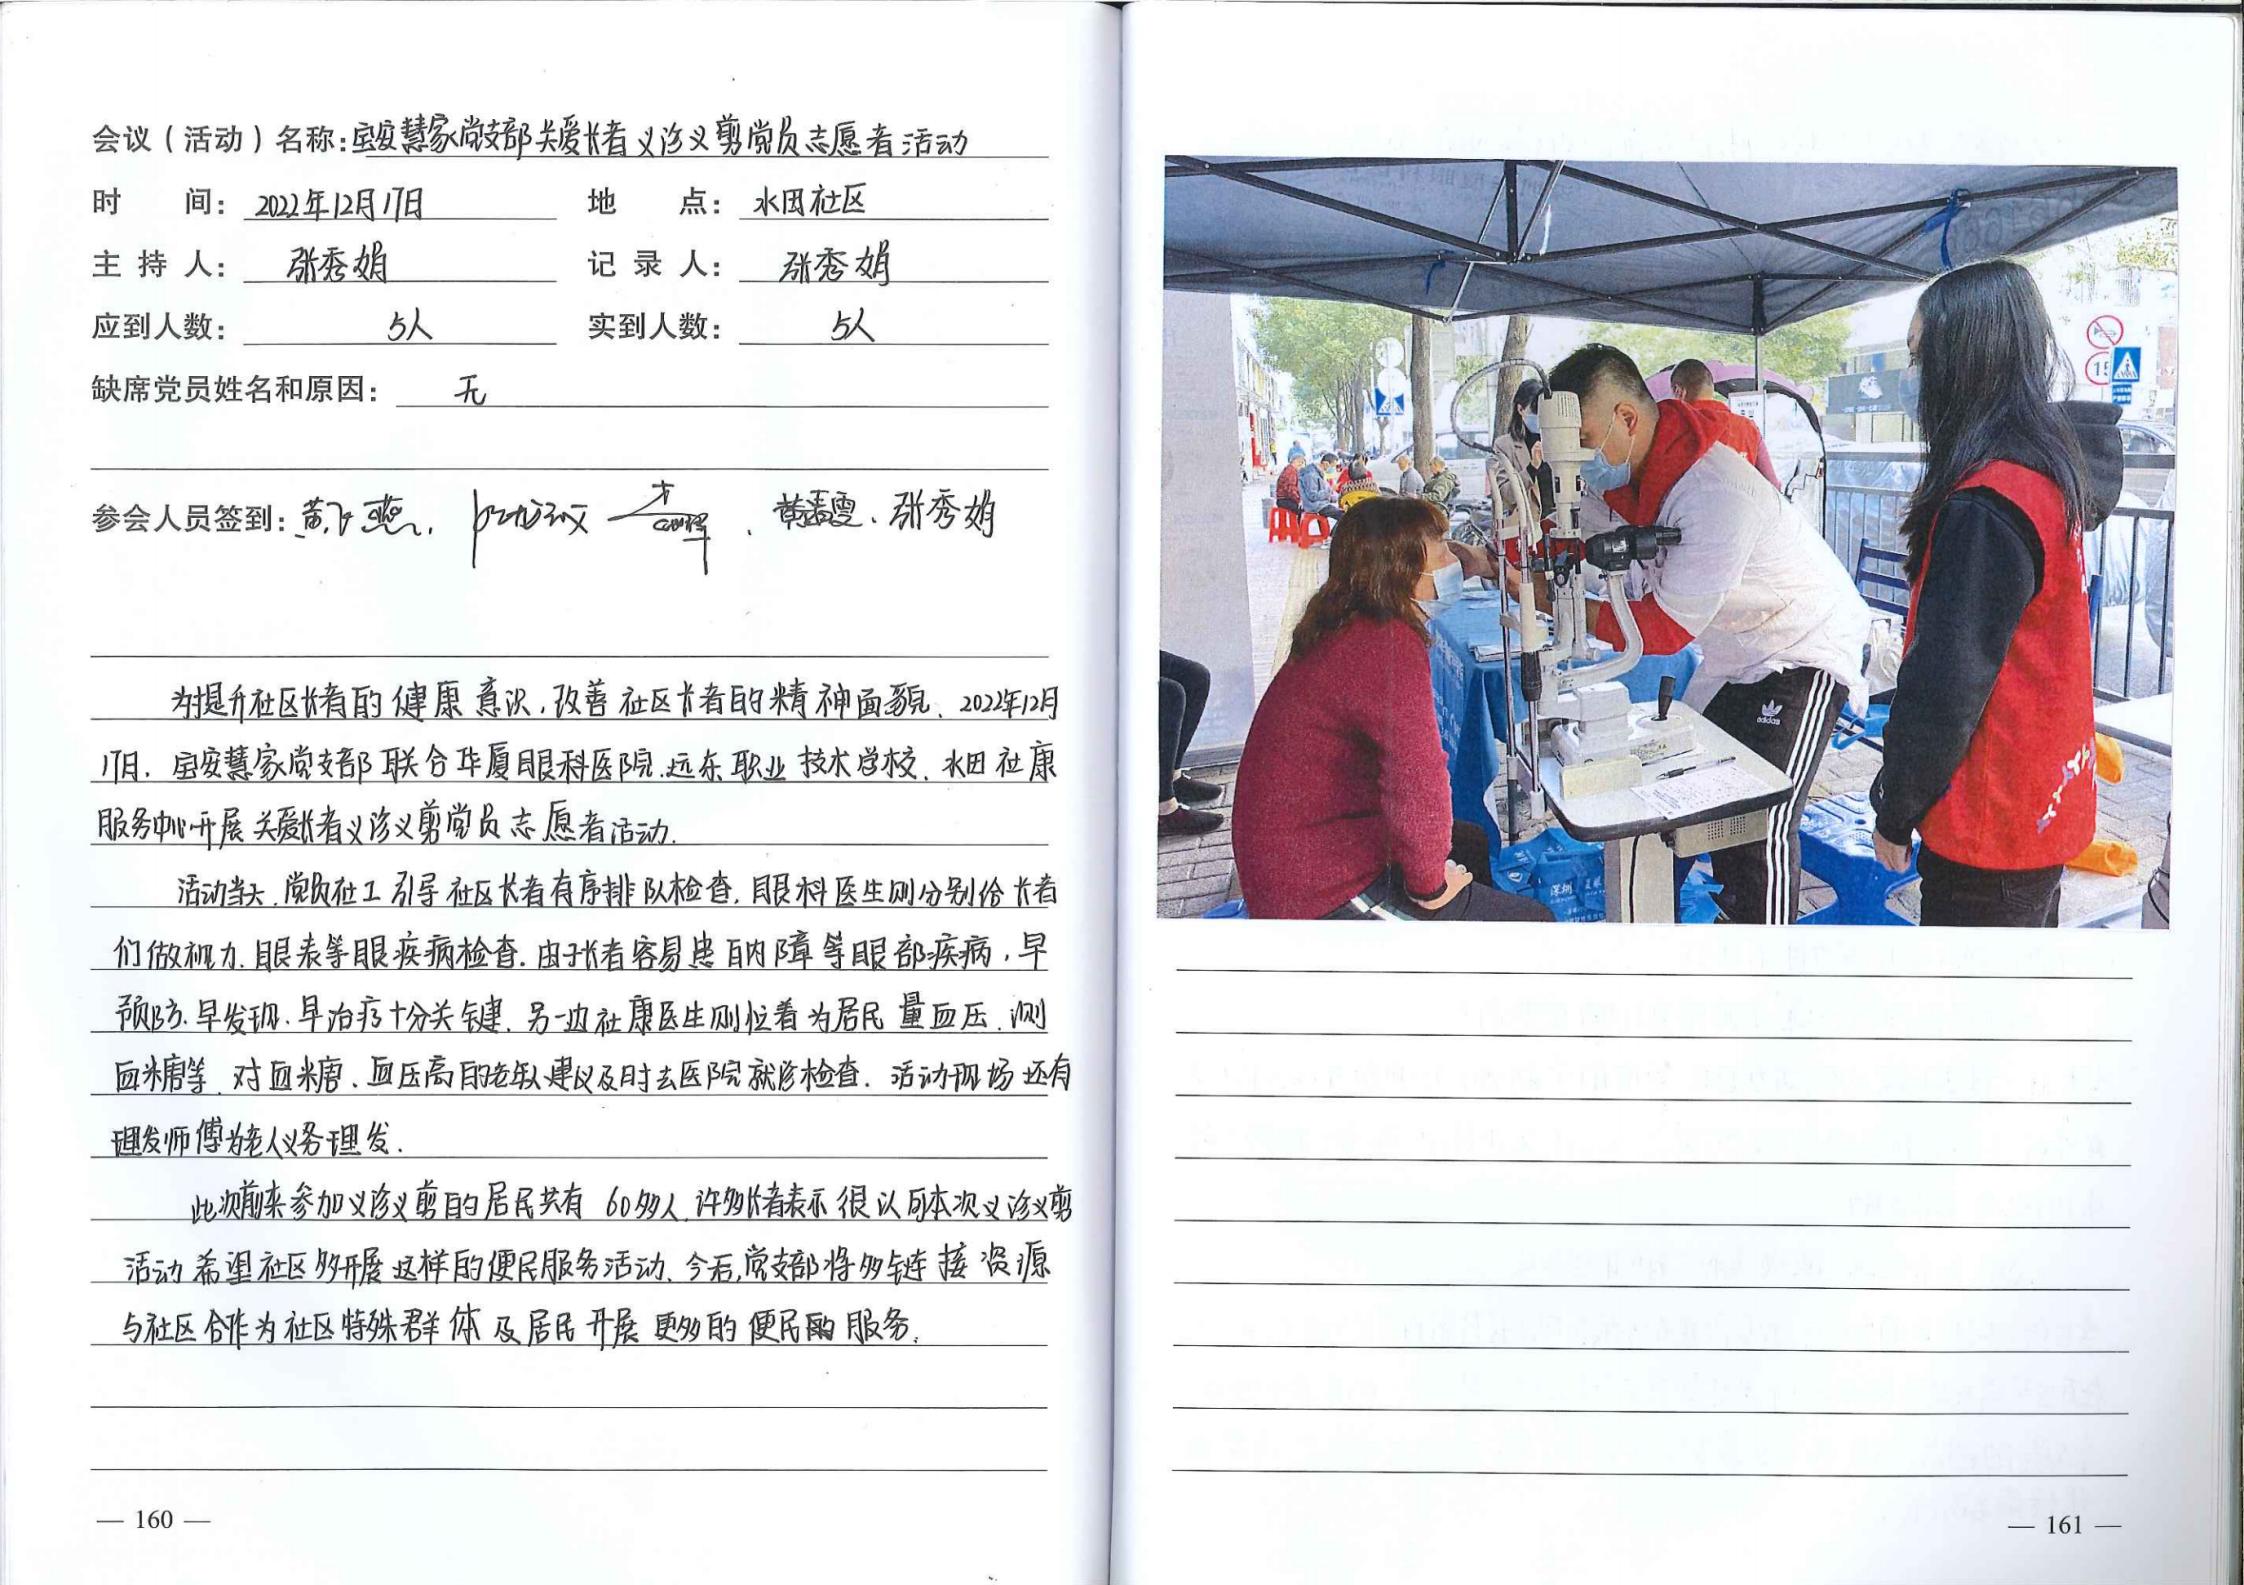 会议（活动）名称：宝安慧家党支部关爱长者义诊义剪党员志愿者活动
时 间：2022年12月17日 地 点：水田社区
主 持 人：张秀娟 记 录 人：张秀娟
应到人数：5人 实到人数：5人
缺席党员姓名和原因：无
参会人员签到：黄飞燕、 、张秀娟
为提升社区长者的健康意识，改善社区长者的精神面貌，2022年12月
17日，宝安慧家党支部联合华厦眼科医院、远东职业技术学校、水田社康
服务中心开展关爱长者义诊义剪党员志愿者活动.
活动当天，党员社工引导社区长者有序排队检查，眼科医生则分别给长者
们做视力、眼表等眼疾病检查.由于长者容易患白内障等眼部疾病，早
预防、早发现、早治疗十分关键.另一边社康医生则忙着为居民量血压、测
血糖等，对血糖、血压高的老年人建议及时去医院就诊检查.活动现场还有
理发师傅为老人义务理发.
此次前来参加义诊义剪的居民共有60多人，许多长者表示很认可本次义诊义剪
活动希望社区多开展这样的便民服务活动.今后，党支部将多链接资源
与社区合作为社区特殊群体及居民开展更多的便民的服务.
— 160 —
adidas
15
深圳
— 161 —